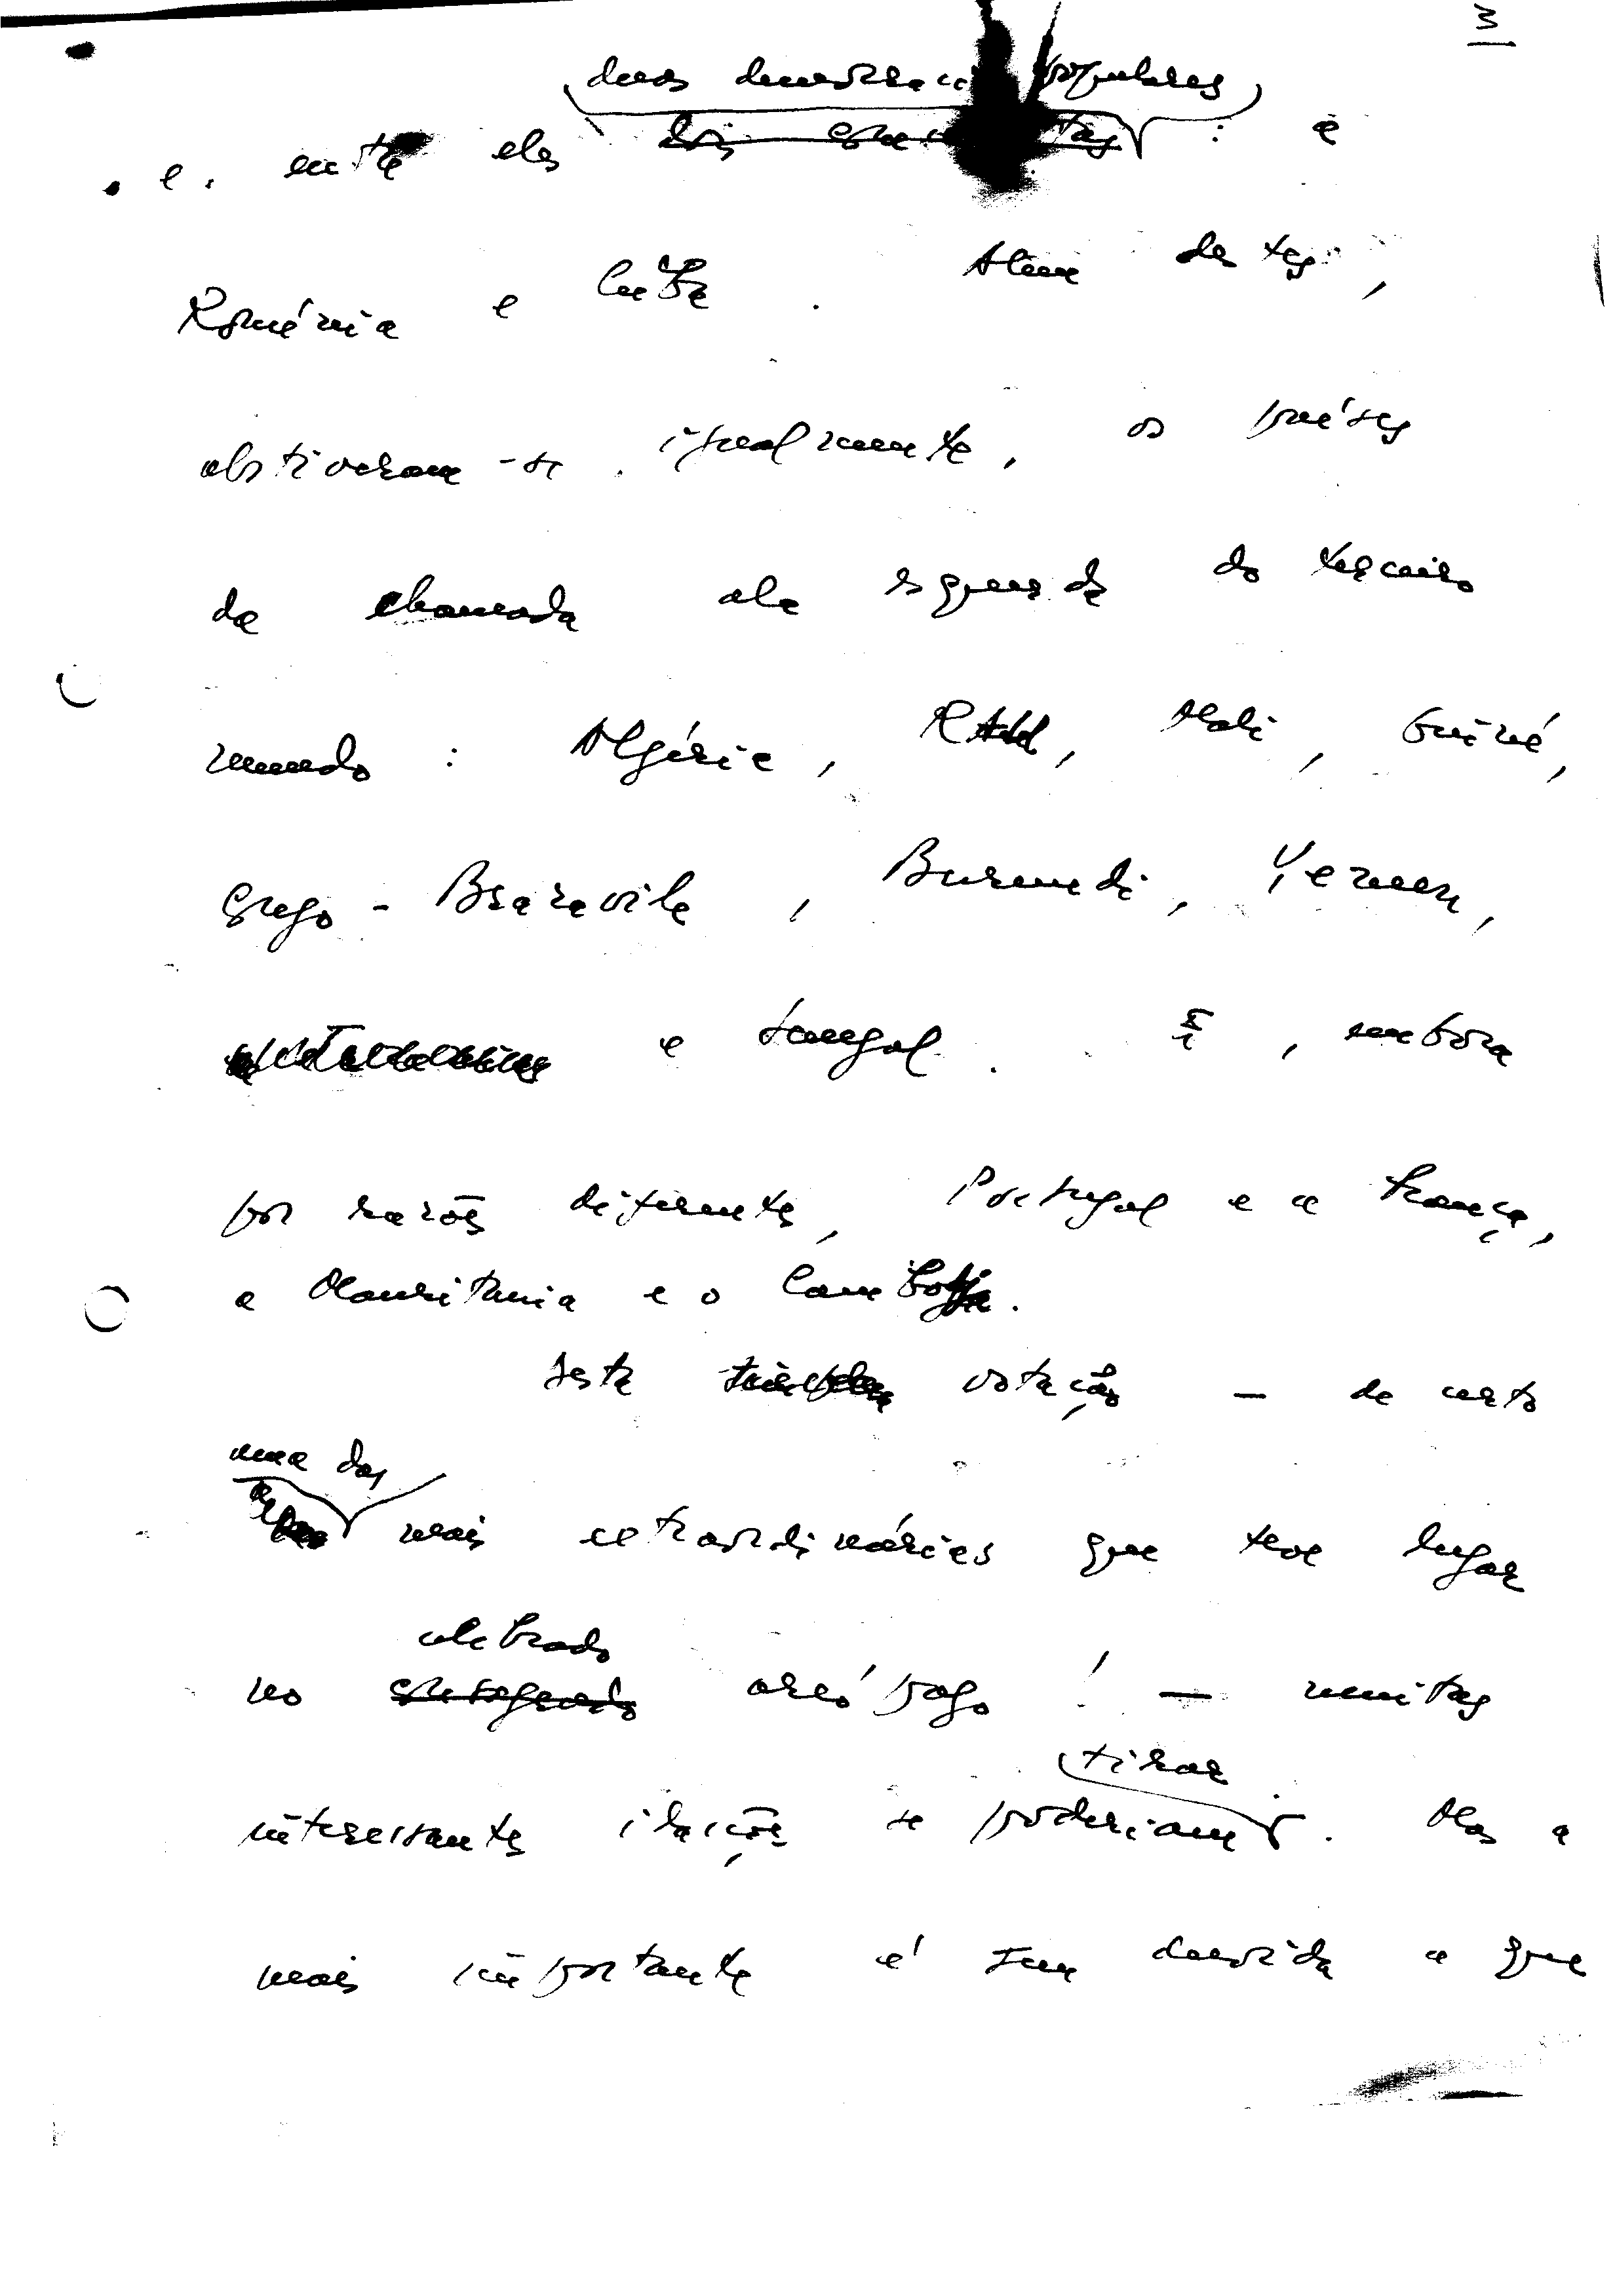 3
duas democracias populares
e, entre eles : a
Roménia e Cuba. Além destes,
abstiveram-se, igualmente, os países
da chamada ala esquerda do terceiro
mundo : Algéria, RAU, Mali, Guiné,
Congo-Brazavile, Burundi, Yemen,
e Senegal. E, embora
por razões diferentes, Portugal e a França,
a Mauritania e o Cambodja.
Desta votação — de certo
uma das
mais extraordinárias que teve lugar
celebrado
no areópago! — muitas
tirar
interessantes ilações se poderiam. Mas a
mais importante é sem duvida a que